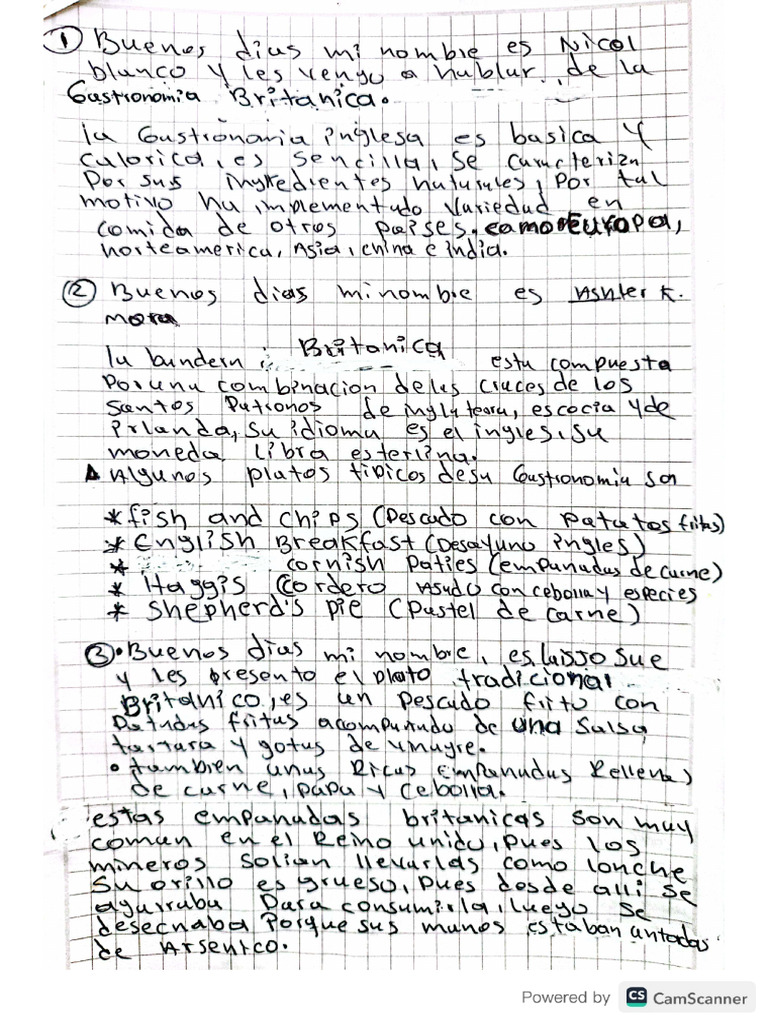 ① Buenos dias mi nombre es Nicol
blanco y les vengo a hablar de la
Gastronomia Britanica.
la Gastronomia inglesa es basica y
calorica, es sencilla, se caracteriza
Por sus ingredientes naturales, Por tal
motivo ha implementado Variedad en
comida de otros paises. como Europa,
norteamerica, Asia, china e india.
② Buenos dias mi nombre es Ashler K.
mora
la bandera Britanica esta compuesta
Por una combinacion de las cruces de los
santos Patronos de inglaterra, escocia y de
irlanda, su idioma es el ingles, su
moneda libra esterlina.
Algunos platos tipicos de su Gastronomia son
* fish and chips (Pescado con patatas fritas)
* English Breakfast (Desayuno ingles)
* cornish Paties (empanadas de carne)
* Haggis (Cordero Asado con cebolla y especies
* Shepherd's pie (Pastel de carne)
③ • Buenos dias mi nombre, es, Sue
y les presento el plato tradicional
Britanico, es un Pescado frito con
Patadas fritas acompañado de una Salsa
tartara y gotas de vinagre.
• tambien unas Ricas Empanadas Rellenas
de carne, papa y cebolla.
estas empanadas britanicas son muy
comun en el Reino unido, Pues los
mineros solian llevarlas como lonche
Su orillo es grueso, Pues desde alli se
agarraba Para consumirla, luego se
desechaba Porque sus manos estaban untadas
de Arsenico.
Powered by CS CamScanner